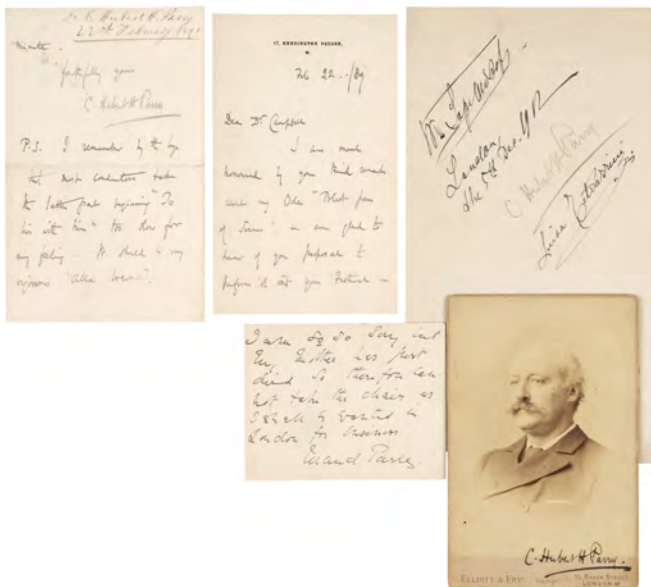 Dr. C. Hubert H. Parry
22nd February
minutes.
faithfully yours
C Hubert H Parry
P.S. I remember by the bye
that most conductors take
the latter part beginning "To
live with Him" too slow for
my feeling. It should be very
vigorous "alla breve".
17, KENSINGTON SQUARE,
W.
Feb 22. /89
Dear Dr Campbell
I am much
honoured by your kind remarks
about my Ode "Blest pair
of Sirens" & am glad to
hear of your proposal to
perform it at your Festival in
London,
the 5th Dec. 1912
C. Hubert H Parry
Luisa Tetrazzini
I am so to say but
my Mother has just
died so therefore can
not take the chair as
I shall be wanted in
London for business
Maud Parry.
C. Hubert H Parry.
ELLIOTT & FRY
55, BAKER STREET
LONDON W